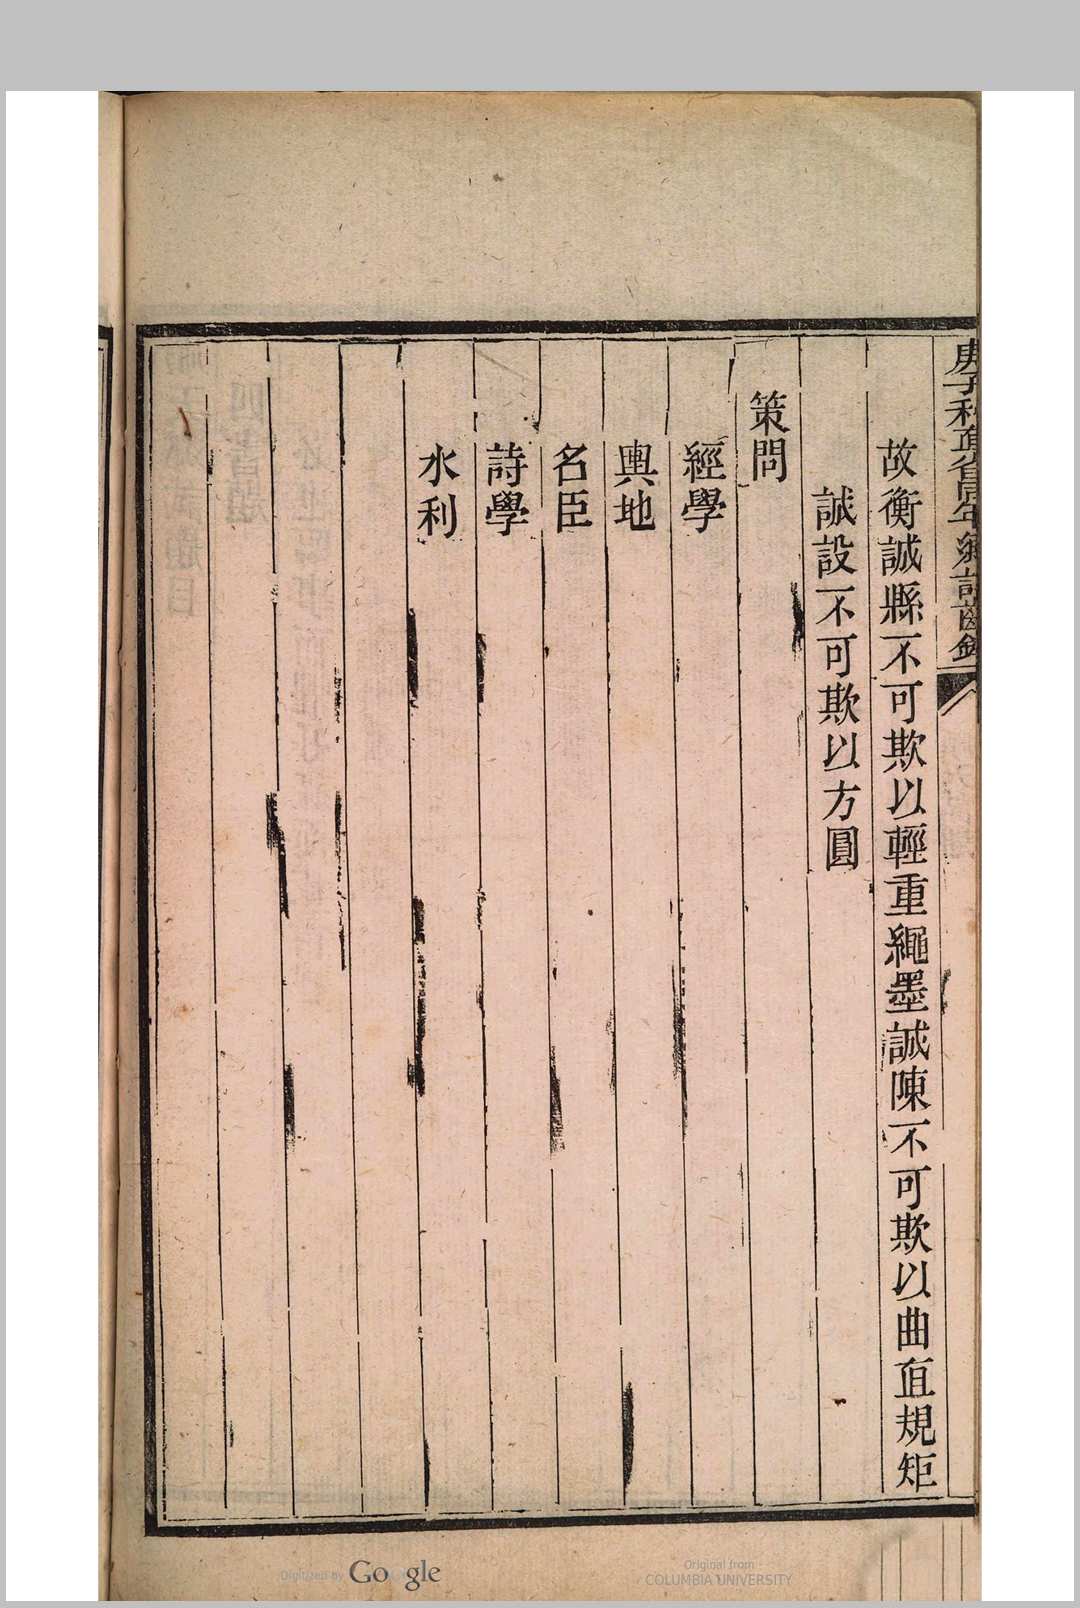 庚子科直省同年鄉試齒錄
故衡誠縣不可欺以輕重繩墨誠陳不可欺以曲直規矩
誠設不可欺以方圓
策問
經學
輿地
名臣
詩學
水利
Digitized by Google
Original from
COLUMBIA UNIVERSITY